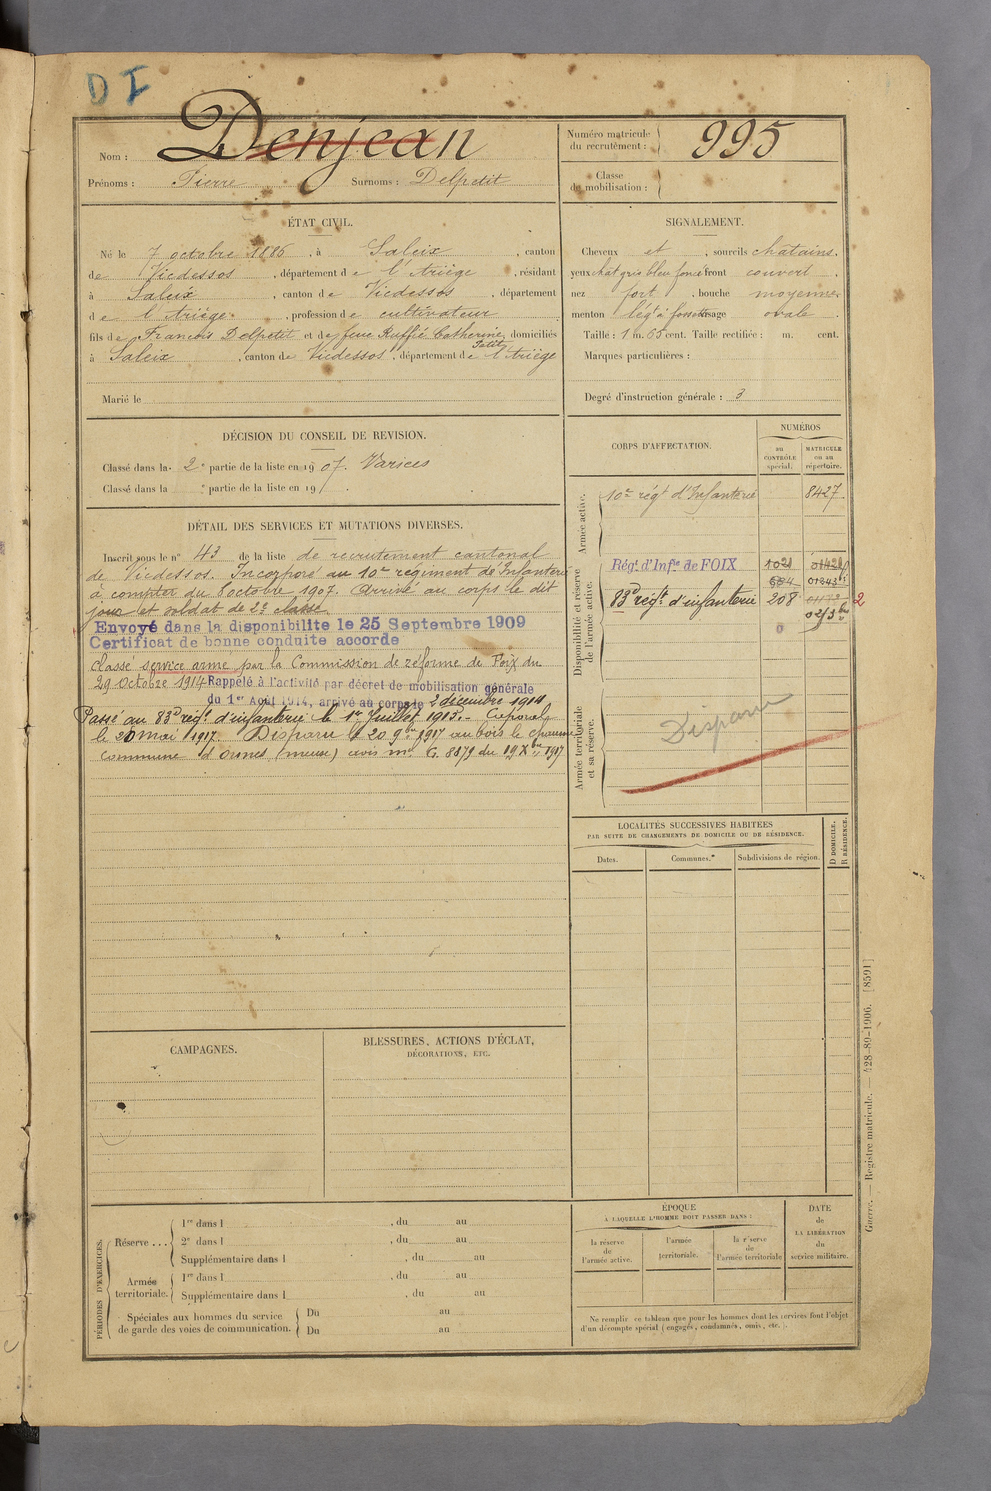 D I
Nom : Denjean
Prénoms : Pierre Surnoms : Delpetit
Numéro matricule du recrutement : 995
Classe de mobilisation :
ÉTAT CIVIL.
Né le 7 octobre 1886, à Saleix, canton
de Vicdessos, département de l'Ariège, résidant
à Saleix, canton de Vicdessos, département
de l'Ariège, profession de cultivateur
fils de François Delpetit et de feue Ruffié Catherine, domiciliés
Petit
à Saleix, canton de Vicdessos, département de l'Ariège
Marié le
SIGNALEMENT.
Cheveux et, sourcils chatains,
yeux chat gris bleu foncé front couvert,
nez fort, bouche moyenne,
menton lég. à fossette visage ovale
Taille : 1 m. 65 cent. Taille rectifiée : m. cent.
Marques particulières :
Degré d'instruction générale : 3
DÉCISION DU CONSEIL DE REVISION.
Classé dans la 2e partie de la liste en 1907. Varices
Classé dans la e partie de la liste en 19
DÉTAIL DES SERVICES ET MUTATIONS DIVERSES.
Inscrit sous le n° 43 de la liste de recrutement cantonal
de Vicdessos. Incorporé au 10e régiment d'Infanterie
à compter du 8 octobre 1907. Arrivé au corps le dit
jour et soldat de 2e classe.
Envoyé dans la disponibilite le 25 Septembre 1909
Certificat de bonne conduite accorde
Classé service armé par la Commission de réforme de Foix du
29 Octobre 1914 Rappelé à l'activité par décret de mobilisation générale
du 1er Août 1914, arrivé au corps le 2 décembre 1914
Passé au 83e régt d'infanterie le 1er Juillet 1915. - Caporal
le 20 mai 1917. Disparu le 20 9bre 1917 au bois le chaume
commune d'Ornes (meuse) avis ml G. 8879 du 19 Xbre 1917
CORPS D'AFFECTATION.
NUMÉROS
au CONTRÔLE spécial.
MATRICULE ou au répertoire.
Armée active.
10e régt d'Infanterie 8427
Disponibilité et réserve de l'armée active.
Régt d'Infie de FOIX 1021
83e régt d'infanterie 208
Armée territoriale et sa réserve.
Disparu
LOCALITÉS SUCCESSIVES HABITÉES
PAR SUITE DE CHANGEMENTS DE DOMICILE OU DE RÉSIDENCE.
Dates. Communes. Subdivisions de région.
D DOMICILE.
R RÉSIDENCE.
CAMPAGNES.
BLESSURES, ACTIONS D'ÉCLAT,
DÉCORATIONS, ETC.
PÉRIODES D'EXERCICES.
Réserve ...
1re dans l , du au
2e dans l , du au
Supplémentaire dans l , du au
Armée territoriale.
1re dans l , du au
Supplémentaire dans l , du au
Spéciales aux hommes du service de garde des voies de communication.
Du au
Du au
ÉPOQUE
À LAQUELLE L'HOMME DOIT PASSER DANS :
la réserve de l'armée active.
l'armée territoriale.
la réserve de l'armée territoriale
DATE
de
LA LIBÉRATION
du
service militaire.
Ne remplir ce tableau que pour les hommes dont les services font l'objet
d'un décompte spécial (engagés, condamnés, omis, etc.).
Guerre. — Registre matricule. — 428-89-1906. [8591]